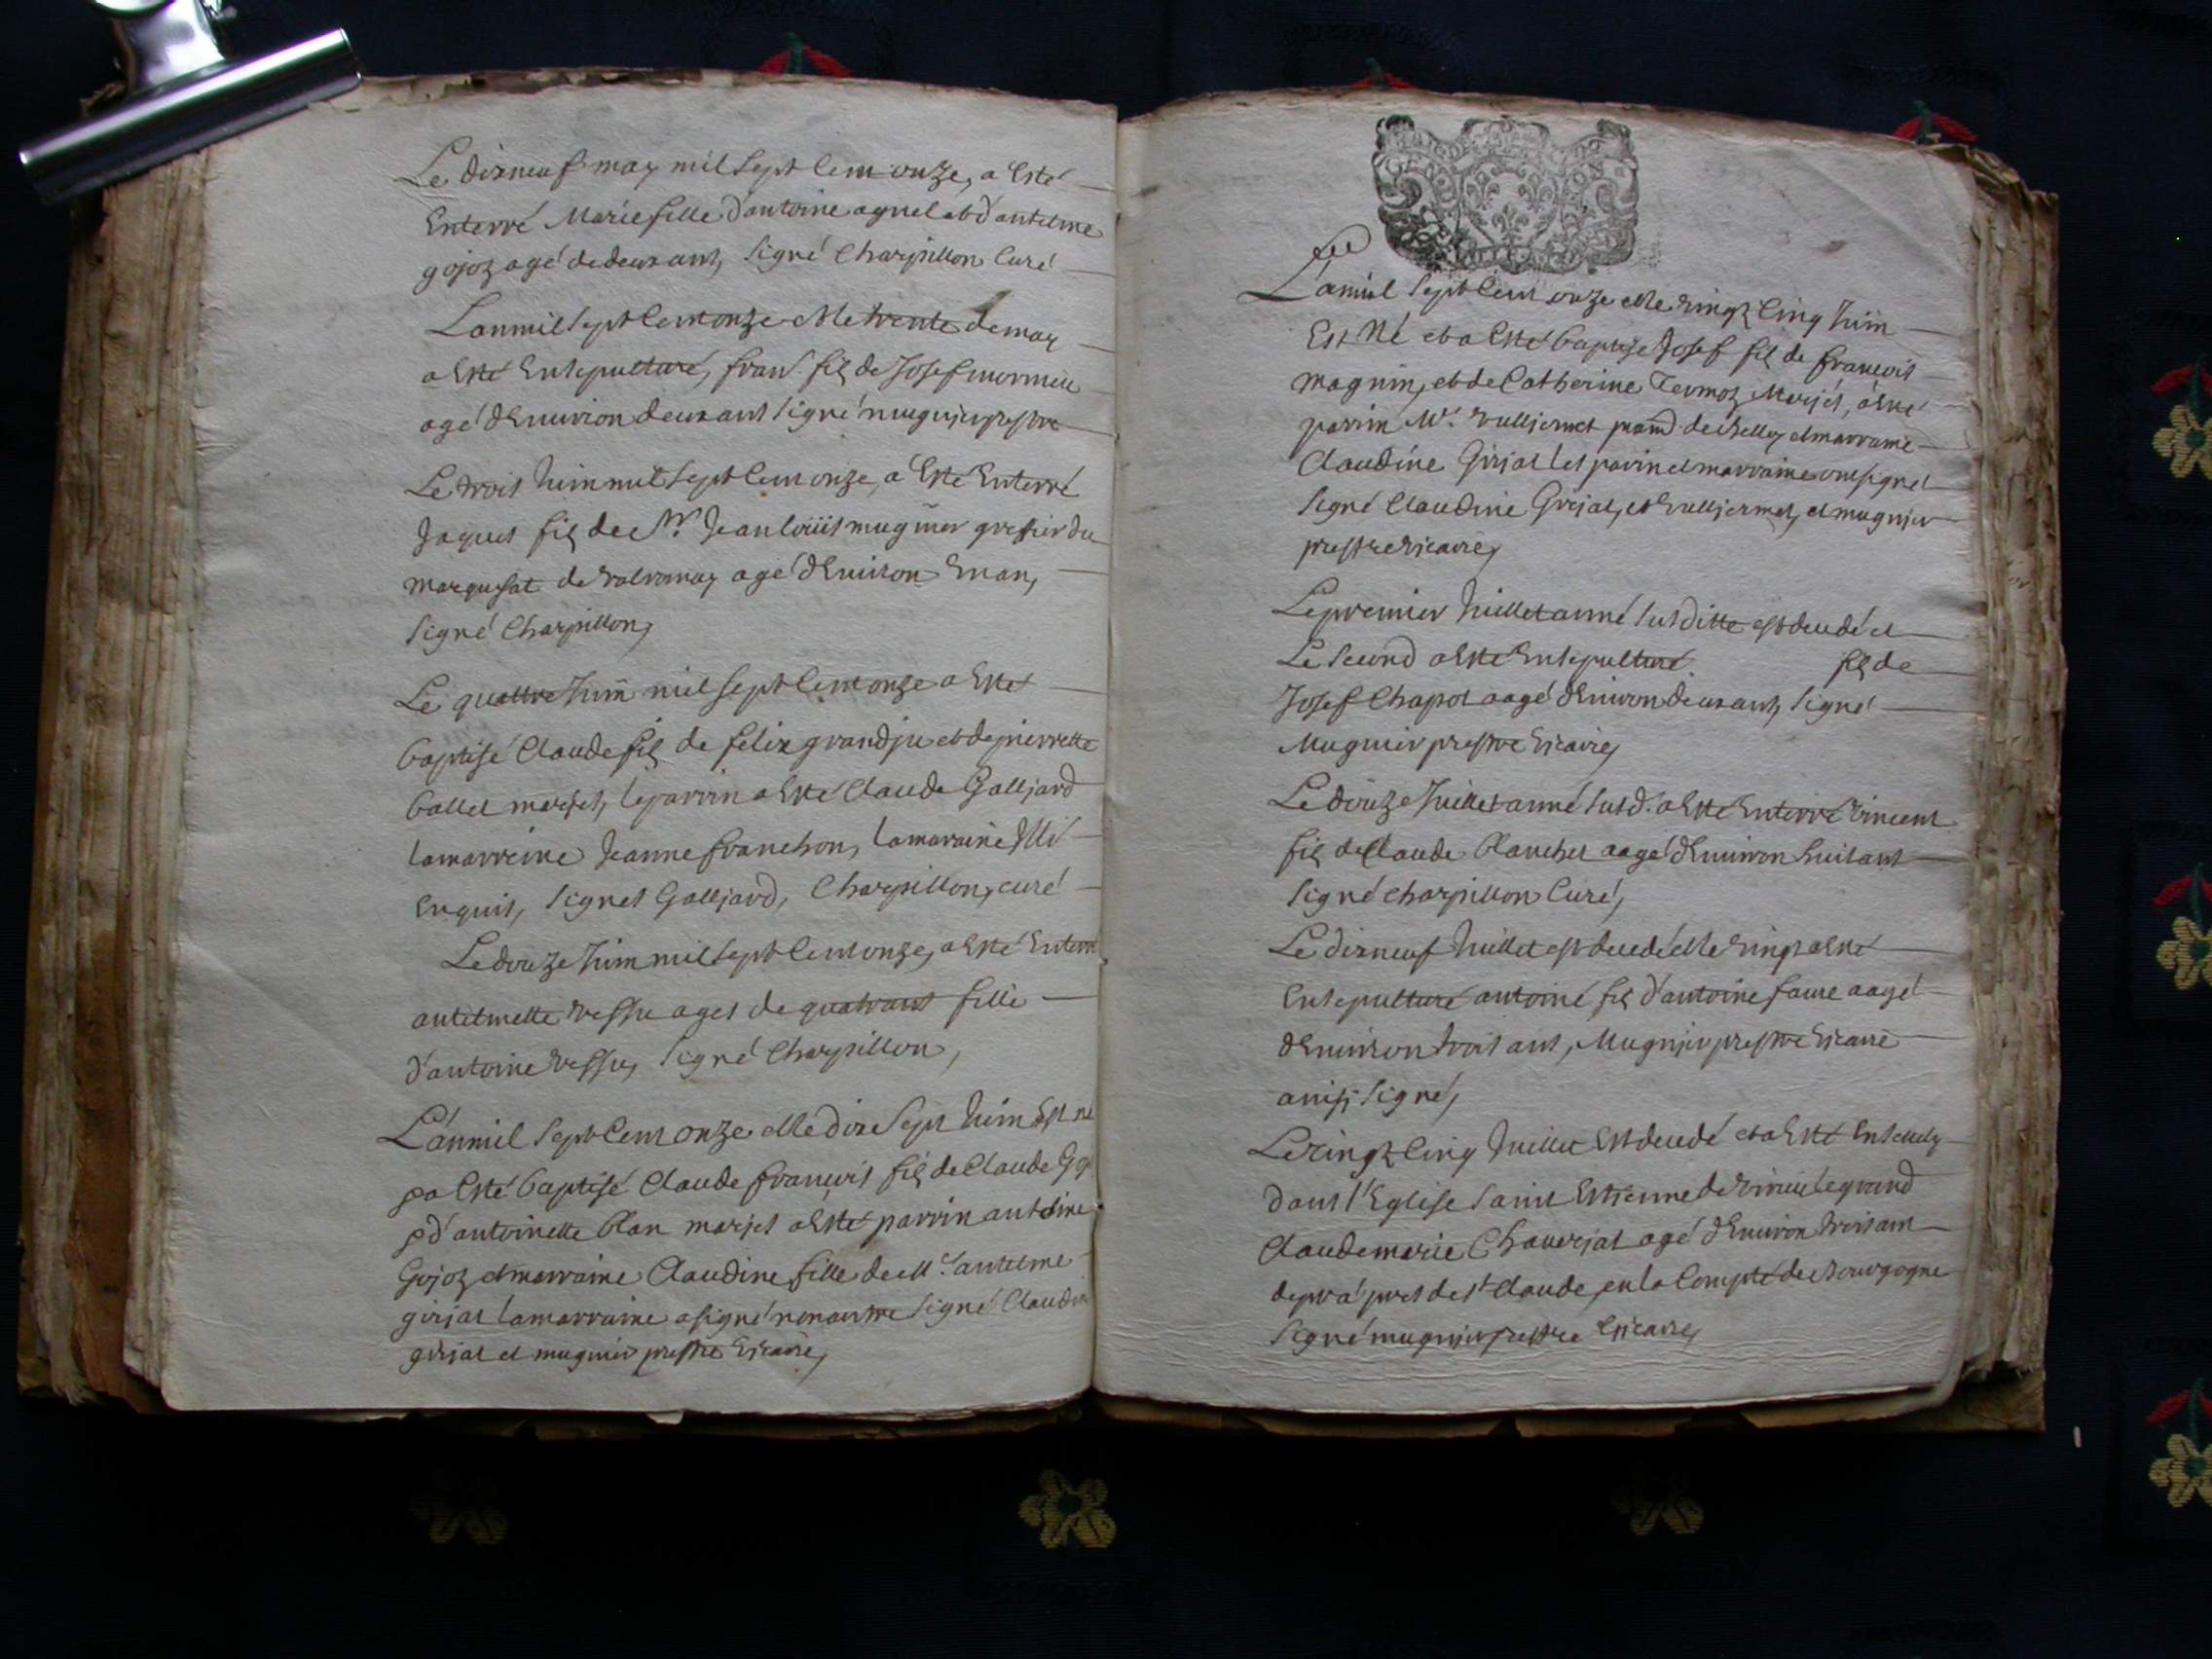 Le dixneuf may mil sept cent onze, a esté
Enterré Marie fille d'antoine agnel et d'antelme
gojoz agé de deux ans, signé Charpillon Curé
L'an mil sept cent onze et le trente de may
a esté Ensepulturé, fran.s fiz de Josef
agé d'Environ deux ans signé mugnier prestre
Le trois Juin mil sept cent onze, a esté Enterré
Jaques fiz de Sr. Jean louiis mugnier greffier du
marquisat de Valromay agé d'Environ Un an,
signé Charpillon,
Le quattre Juin mil sept cent onze a esté
baptisé Claude fiz de felix grandju et de pierrette
ballet mariés, le parrin a esté Claude Galljard
la marreine Jeanne franchon, la maraine Illi
Enquis, signés Galljard, Charpillon, curé
Le douze Juin mil sept cent onze, a esté Enterré
antelmette vessu ages de quatr'ans fille
d'antoine vessu, signé Charpillon,
L'an mil sept cent onze et le dix sept Juin Est né
& a esté baptisé Claude françois fiz de Claude
& d'antoinette blan mariés a esté parrin antoine
Gojoz et marraine Claudine fille de Me. antelme
girjat la marraine a signé non autre signé Claudine
girjat et mugnier prestre Vicaire,
GEN DION
L'an mil sept cent onze et le vingt cinq Juin
Est Né et a esté baptisé Josef fiz de françois
magnin, et de Catherine Termoz Mariés, a esté
parrin Mr. Vulljermet de belley et marraine
Claudine Girjat les parrin et marraine ont signé
signé Claudine Girjat, et Vulljermet, et mugnier
prestre Vicaire,
Le premier Juillet anné susditte est decedé et
Le second a esté Ensepulturé fiz de
Josef Chapot aagé d'Environ deux ans, signé
Mugnier prestre Vicaire,
Le douze Juillet anné susd. a esté Enterré Vincent
fiz de Claude blanchet aagé d'Environ huit ans
signé Charpillon Curé,
Le dixneuf Juillet est decedé et le vingt a esté
Ensepulturé antoine fiz d'antoine faure aagé
d'Environ trois ans, Mugnier prestre Vicaire
ainsi signé,
Le vingt cinq Juillet Est decedé et a esté Ensevely
dans l'Eglise saint Estienne de Virieu le grand
Claude marie Chauvjat agé d'Environ trois ans
de pra pres de st. Claude, en la Compté de Bourgogne
signé mugnier prestre Vicaire,